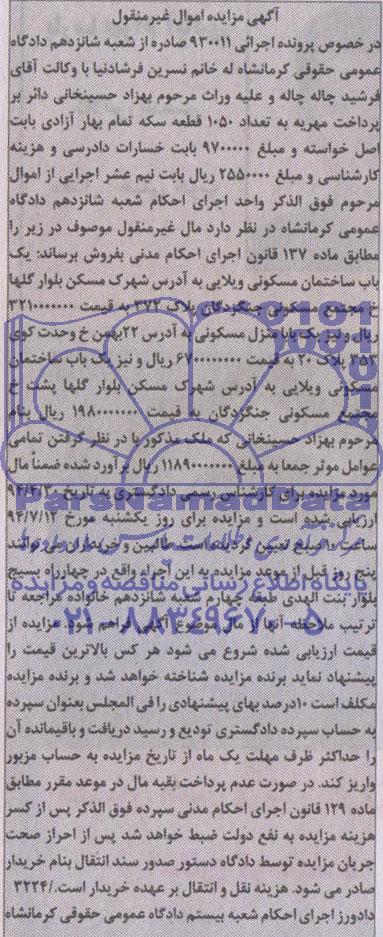 آگهی مزایده اموال غیرمنقول
در خصوص پرونده اجرائی ۹۳۰۰۱۱ صادره از شعبه شانزدهم دادگاه
عمومی حقوقی کرمانشاه له خانم نسرین فرشادنیا با وکالت آقای
فرشید چاله چاله و علیه وراث مرحوم بهزاد حسینخانی دائر بر
پرداخت مهریه به تعداد ۱۰۵۰ قطعه سکه تمام بهار آزادی بابت
اصل خواسته و مبلغ ۹۷۰۰۰۰۰ بابت خسارات دادرسی و هزینه
کارشناسی و مبلغ ۲۵۵۰۰۰۰ ریال بابت نیم عشر اجرایی از اموال
مرحوم فوق الذکر واحد اجرای احکام شعبه شانزدهم دادگاه
عمومی کرمانشاه در نظر دارد مال غیرمنقول موصوف در زیر را
مطابق ماده ۱۳۷ قانون اجرای احکام مدنی بفروش برساند: یک
باب ساختمان مسکونی ویلایی به آدرس شهرک مسکن بلوار گلها
خ مجتمع مسکونی جنگزدگان پلاک ۳۷۲ به قیمت ۳۲۱۰۰۰۰۰۰۰
ریال و نیز یک باب منزل مسکونی به آدرس ۲۲بهمن خ وحدت کوی
۳۵۳ پلاک ۲۰ به قیمت ۶۷۰۰۰۰۰۰۰۰ ریال و نیز یک باب ساختمان
مسکونی ویلایی به آدرس شهرک مسکن بلوار گلها پشت خ
مجتمع مسکونی جنگزدگان به قیمت ۱۹۸۰۰۰۰۰۰۰ ریال بنام
مرحوم بهزاد حسینخانی که ملک مذکور با در نظر گرفتن تمامی
عوامل موثر جمعا به مبلغ ۱۱۸۹۰۰۰۰۰۰۰ ریال برآورد شده ضمناً مال
مورد مزایده برای کارشناس رسمی دادگستری به تاریخ ۹۴/۴/۳۰
ارزیابی شده است و مزایده برای روز یکشنبه مورخ ۹۴/۷/۱۲
ساعت صبح تعیین گردیده است طالبین و خریداران می توانند
پنج روز قبل از موعد مزایده به این اجراء واقع در چهارراه بسیج
بلوار بنت الهدی طبقه چهارم شعبه شانزدهم خانواده مراجعه تا
ترتیب ملاحظه آنها از مال موضوع آگهی فراهم شود مزایده از
قیمت ارزیابی شده شروع می شود هر کس بالاترین قیمت را
پیشنهاد نماید برنده مزایده شناخته خواهد شد و برنده مزایده
مکلف است ۱۰درصد بهای پیشنهادی را فی المجلس بعنوان سپرده
به حساب سپرده دادگستری تودیع و رسید دریافت و باقیمانده آن
را حداکثر ظرف مهلت یک ماه از تاریخ مزایده به حساب مزبور
واریز کند. در صورت عدم پرداخت بقیه مال در موعد مقرر مطابق
ماده ۱۲۹ قانون اجرای احکام مدنی سپرده فوق الذکر پس از کسر
هزینه مزایده به نفع دولت ضبط خواهد شد پس از احراز صحت
جریان مزایده توسط دادگاه دستور صدور سند انتقال بنام خریدار
صادر می شود. هزینه نقل و انتقال بر عهده خریدار است./۳۲۲۴
دادورز اجرای احکام شعبه بیستم دادگاه عمومی حقوقی کرمانشاه
ParsNamadData
پایگاه اطلاع رسانی مناقصه و مزایده
۰۲۱-۸۸۳۴۹۶۷۰-۵